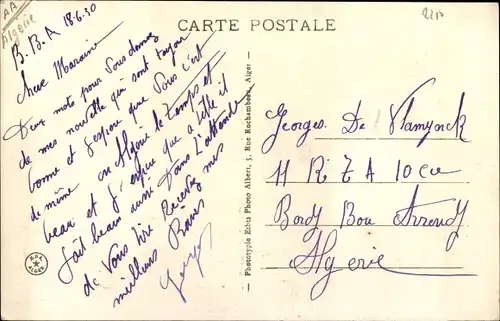 AA
Algérie
CARTE POSTALE
B. B. A 18.6.30
Chere Maraine
Deux mots pour Vous donnez
de mes nouvelle qui sont toujour
bonne et J'espère que Vous c'est
de même en Algerie le temps et
beau et J'espere que a Lille il
fait beau aussi Dans L'attende
de Vous lire Recevez mes
meilleurs Baisers
Georges
Phototypie Etabts Photo Albert, 5, Rue Rochambeau, Alger
Georges De Vlamynck
11 R T A 10 Cie
Bordj Bou Arreridj
Algerie
ALGER